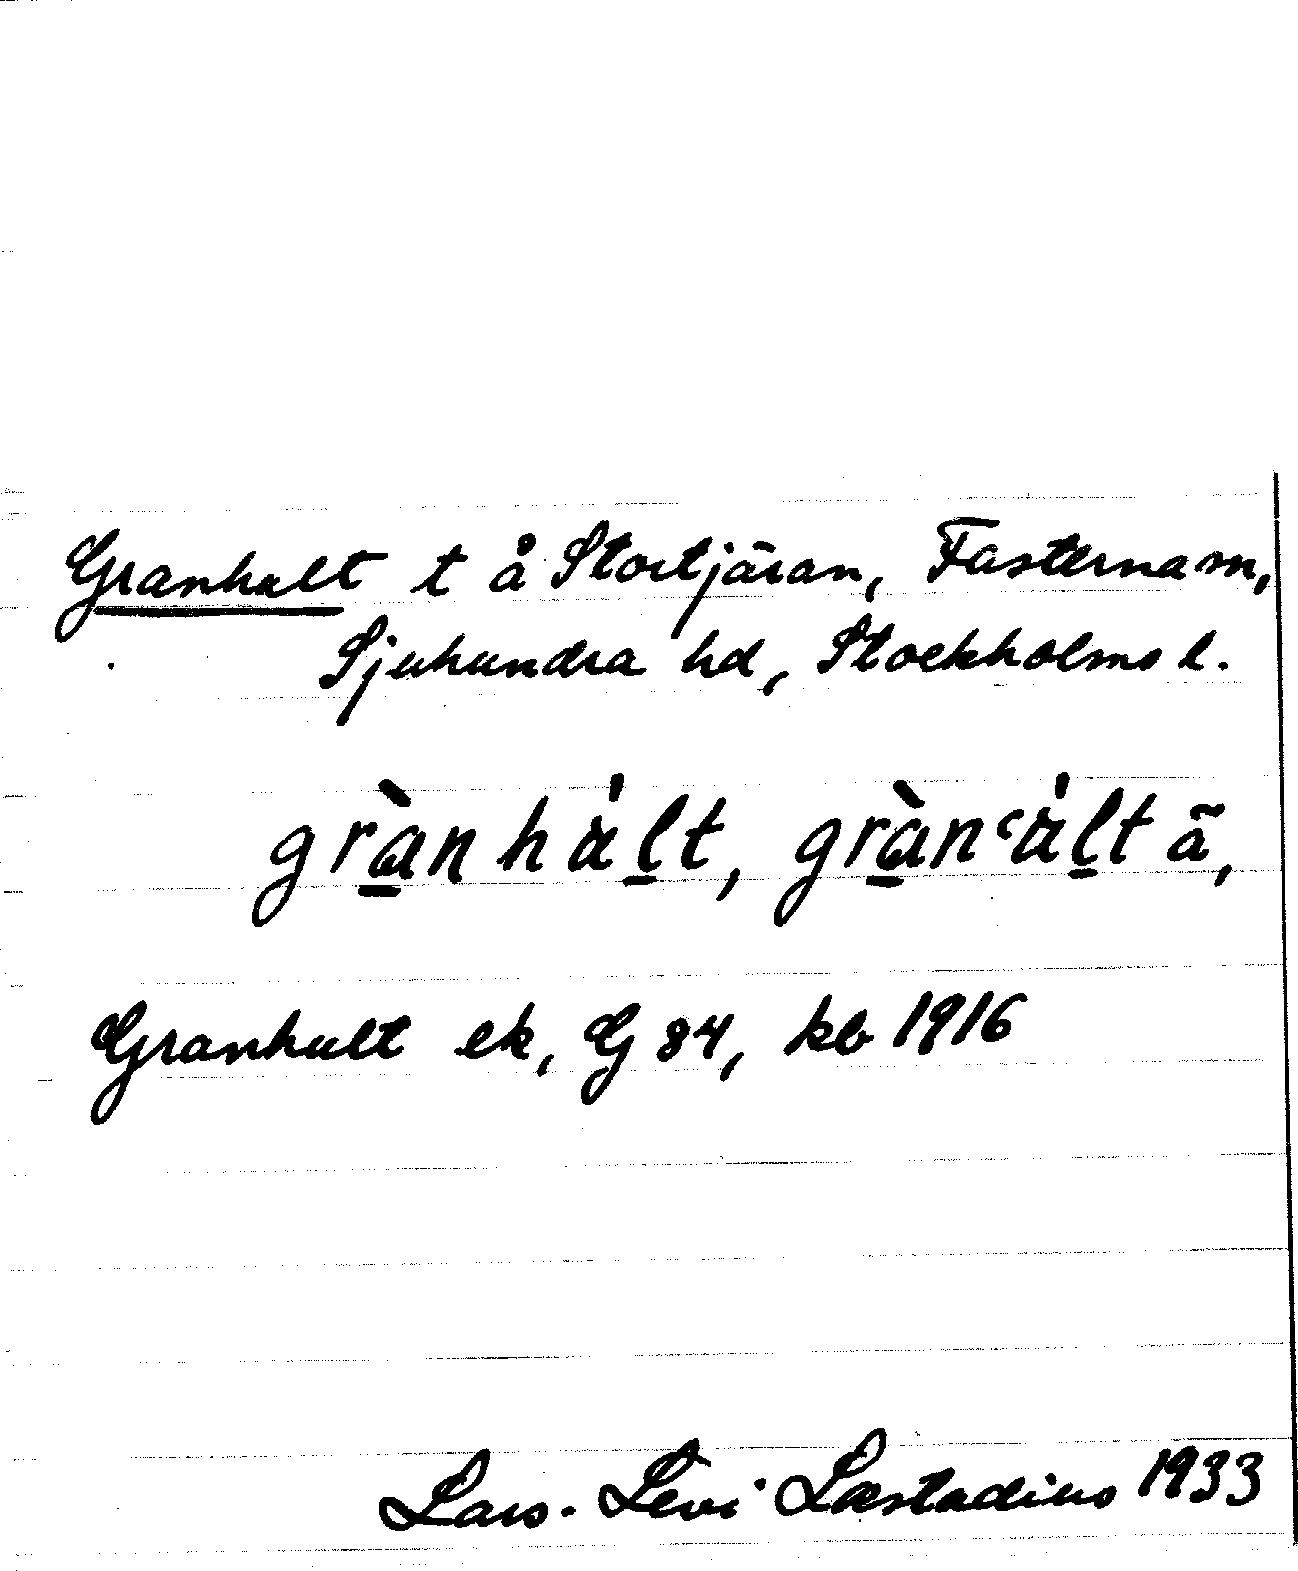 Granhult t å Stortjäran, Fasterna sn,
Sjuhundra hd, Stockholms l.
grànhàlt, gràn‘àltā,
Granhult ek, G 84, kb 1916
Lars-Levi Læstadius 1933